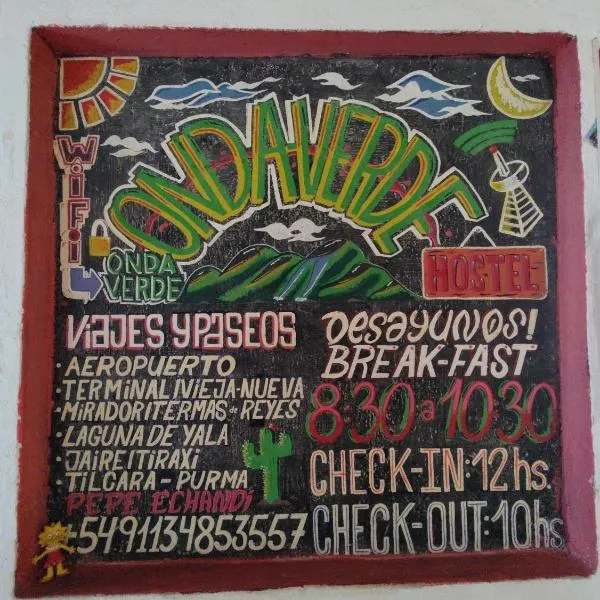 ONDA-VERDE
WiFi
ONDA
VERDE
HOSTEL
ViaJES Y PaSEOS
· AEROPUERTO
· TERMINAL|VIEJA-NUEVA
· MiRADOR|TERMAS de REYES
· LAGUNA DE YALA
· JAIRE|TIRAXi
· TiLCARA - PURMA
PEPE ECHANDi
+5491134853557
Desayunos!
BREAK-FAST
8:30 a 10:30
CHECK-IN:12hs.
CHECK-OUT:10hs